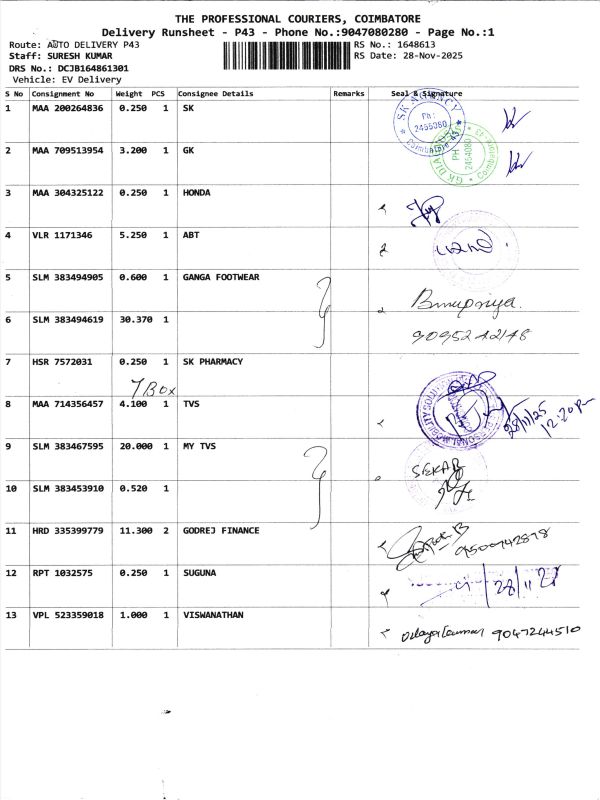 THE PROFESSIONAL COURIERS, COIMBATORE
Delivery Runsheet - P43 - Phone No.:9047080280 - Page No.:1
Route: AUTO DELIVERY P43 RS No.: 1648613
Staff: SURESH KUMAR RS Date: 28-Nov-2025
DRS No.: DCJB164861301
Vehicle: EV Delivery
S No Consignment No Weight PCS Consignee Details Remarks Seal & Signature
1 MAA 200264836 0.250 1 SK
SK AGENCY
Ph: 2455080
Coimbatore
2 MAA 709513954 3.200 1 GK
PH 2454080
3 MAA 304325122 0.250 1 HONDA
4 VLR 1171346 5.250 1 ABT
5 SLM 383494905 0.600 1 GANGA FOOTWEAR
6 SLM 383494619 30.370 1
7 HSR 7572031 0.250 1 SK PHARMACY
7 Box
8 MAA 714356457 4.100 1 TVS
28/11/25
12:20 Pm
9 SLM 383467595 20.000 1 MY TVS
SEKAR
10 SLM 383453910 0.520 1
11 HRD 335399779 11.300 2 GODREJ FINANCE
9500742878
12 RPT 1032575 0.250 1 SUGUNA
13 VPL 523359018 1.000 1 VISWANATHAN
9047244510